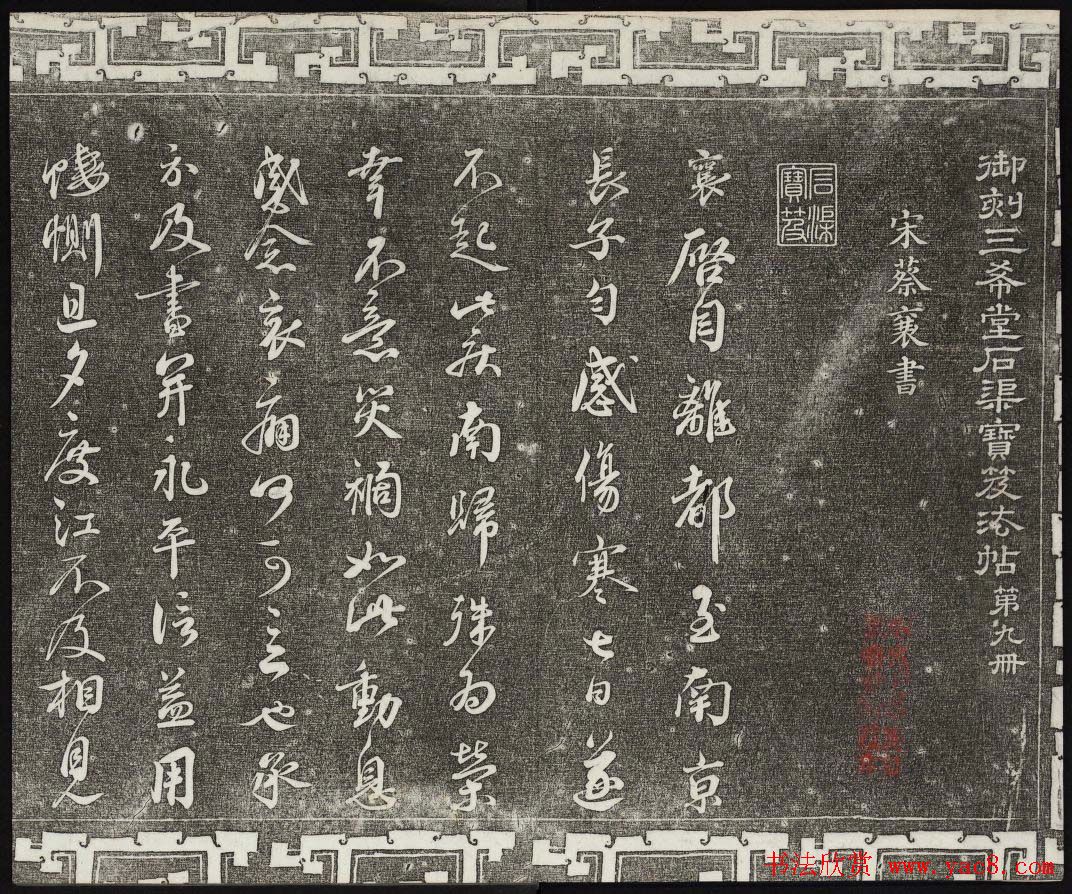 御刻三希堂石渠寶笈法帖第九冊
宋蔡襄書
石渠寶笈
襄啓自離都至南京
長子勻感傷寒七日遂
不起此疾南歸殊為榮
幸不意災禍如此動息
感念哀痛何可言也承
示及書并永平信益用
悽惻旦夕度江不及相見
书法欣赏 www.yac8.com